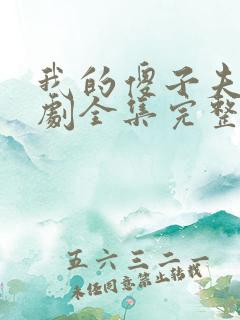 我的傻子夫
劇全集完整
五六三二一
未经同意禁止转载